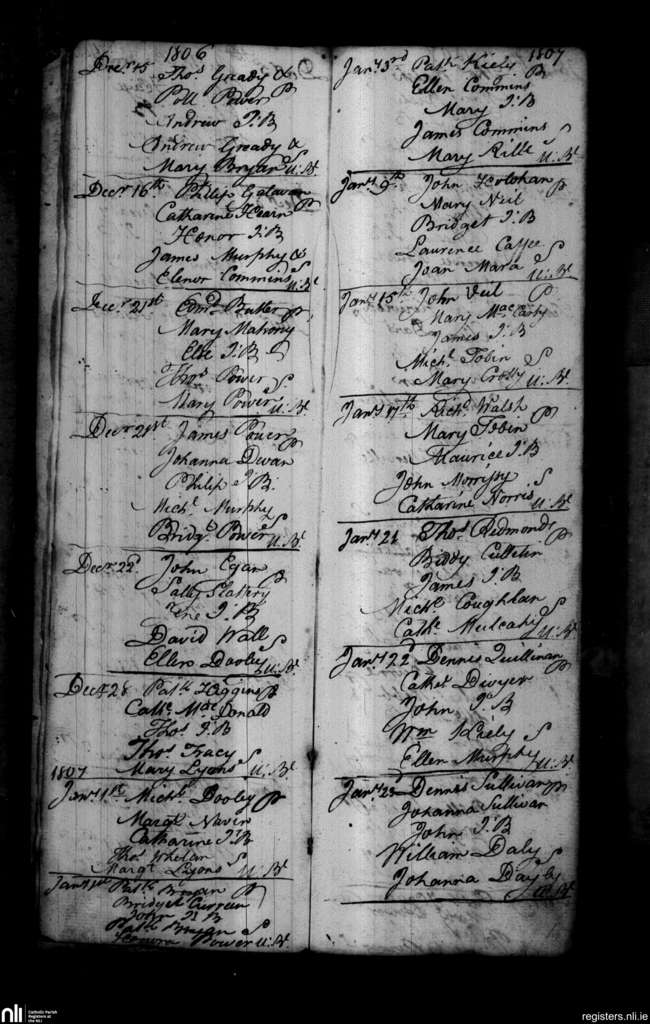 1806
Decr 15
Thos Grady & P
Poll Power
Andrew I:B
Andrew Grady &
Mary Bryan S U:Bt
Decr 16th Philip
Catharine Hearn P
Honor I:B
James Murphy &
Elenor Commins S U:Bt
Decr 21st Edmd Butler P
Mary Mahony
Else I:B
Thos Power S
Mary Power U:Bt
Decr 21st James Power P
Johanna Divan
Philip I:B
Michl Murphy S
Bridgt Power U:Bt
Decr 22d John Egan P
Sally Slattery
I:B
David Wall S
Ellen Dooley U:Bt
Decr 28 Patk Higgins P
Cathe Mac Donald
Thos I:B
Thos Tracy S
Mary Lyons U:Bt
1807
Jany 1st Michl Dooley P
Margt Navin
Catharine I:B
Thos Whelan S
Margt Lyons U:Bt
Jany 1st Patk Bryan P
Bridget Curreen
John I:B
Patk Bryan S
Power U:Bt
1807
Jany 3rd Patk Kiely P
Ellen Commins
Mary I:B
James Commins S
Mary U:Bt
Jany 9th John Holohan P
Mary Neil
Bridget I:B
Laurence S
Joan Mara U:Bt
Jany 15th John P
Mary Mac Carty
James I:B
Michl Tobin S
Mary Crotty U:Bt
Jany 17th Richd Walsh P
Mary Tobin
Maurice I:B
John Morrissy S
Catharine Norris U:Bt
Jany 21 Thos Redmond P
Biddy
James I:B
Michl Coughlan S
Cathe Mulcahy U:Bt
Jany 22d Dennis Quillinan P
Cathe Dwyer
John I:B
Wm Kiely S
Ellen Murphy U:Bt
Jany 25 Dennis Sullivan P
Johanna Sullivan
John I:B
William Daly S
Johanna U:Bt
nli
Catholic Parish
Registers at
the NLI
registers.nli.ie